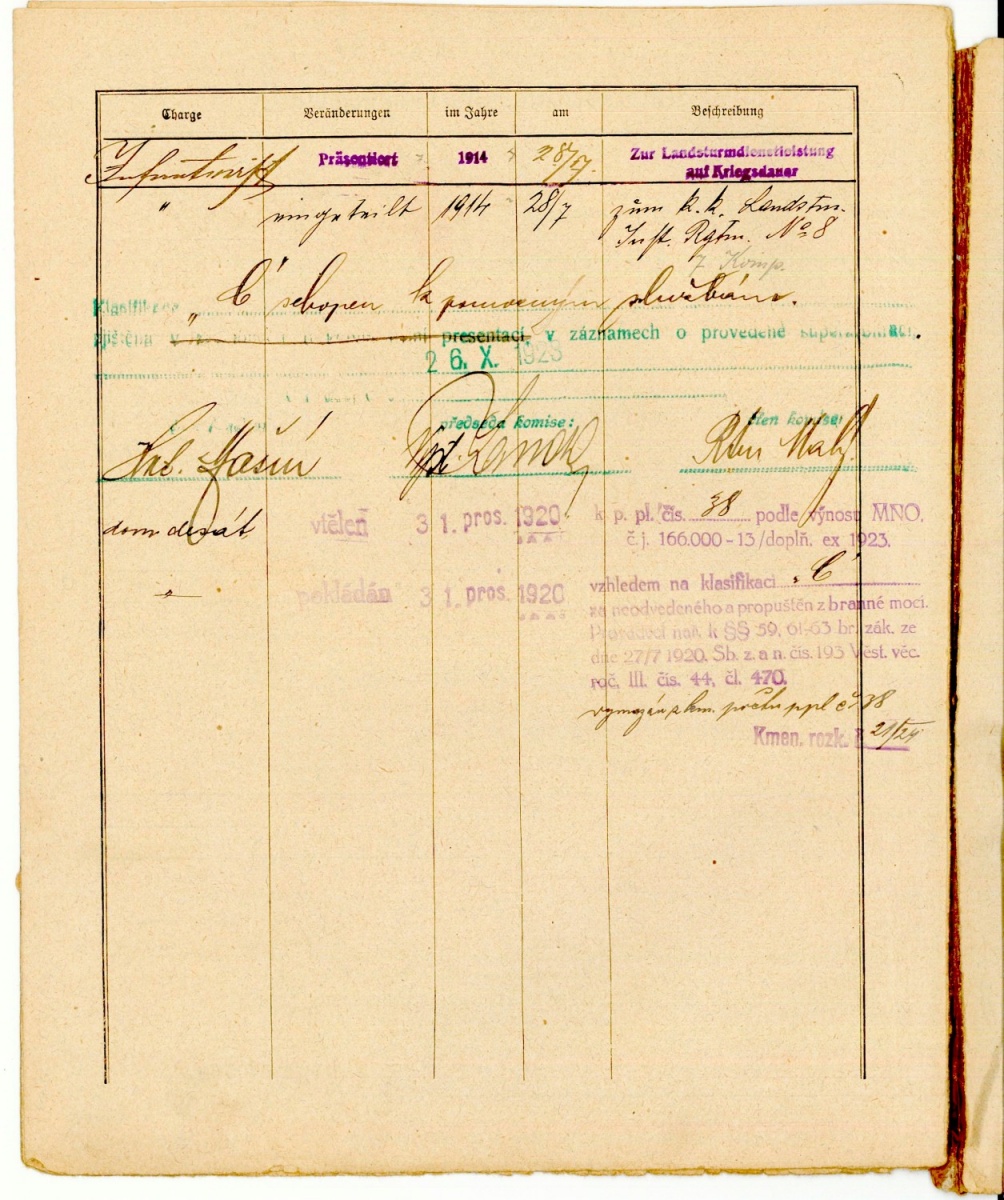 Charge Veränderungen im Jahre am Beschreibung
Infanterist Präsentiert 1914 28/7. Zur Landsturmdienstleistung
auf Kriegsdauer
" eingeteilt 1914 28/7 zum k.k. Landstm.
Inft. Rgtm. No 8
7 Komp.
Klasifikace „C" schopen k pomocným službám.
zjištěna presentaci, v záznamech o provedené superarbitraci.
26. X. 1923
předseda komise: člen komise:
domobranec vtělen 31. pros. 1920 k p. pl. čís. 38 podle výnosu MNO.
č. j. 166.000-13/doplň. ex 1923.
" pokládán 31. pros. 1920 vzhledem na klasifikaci „C"
za neodvedeného a propuštěn z branné moci.
Prováděcí nař. k §§ 59, 61-63 br. zák. ze
dne 27/7 1920. Sb. z. a n. čís. 193 Věst. věc.
roč. III. čís. 44, čl. 470.
vymazán z km. počtu ppl č. 38
Kmen. rozk. č 21/24